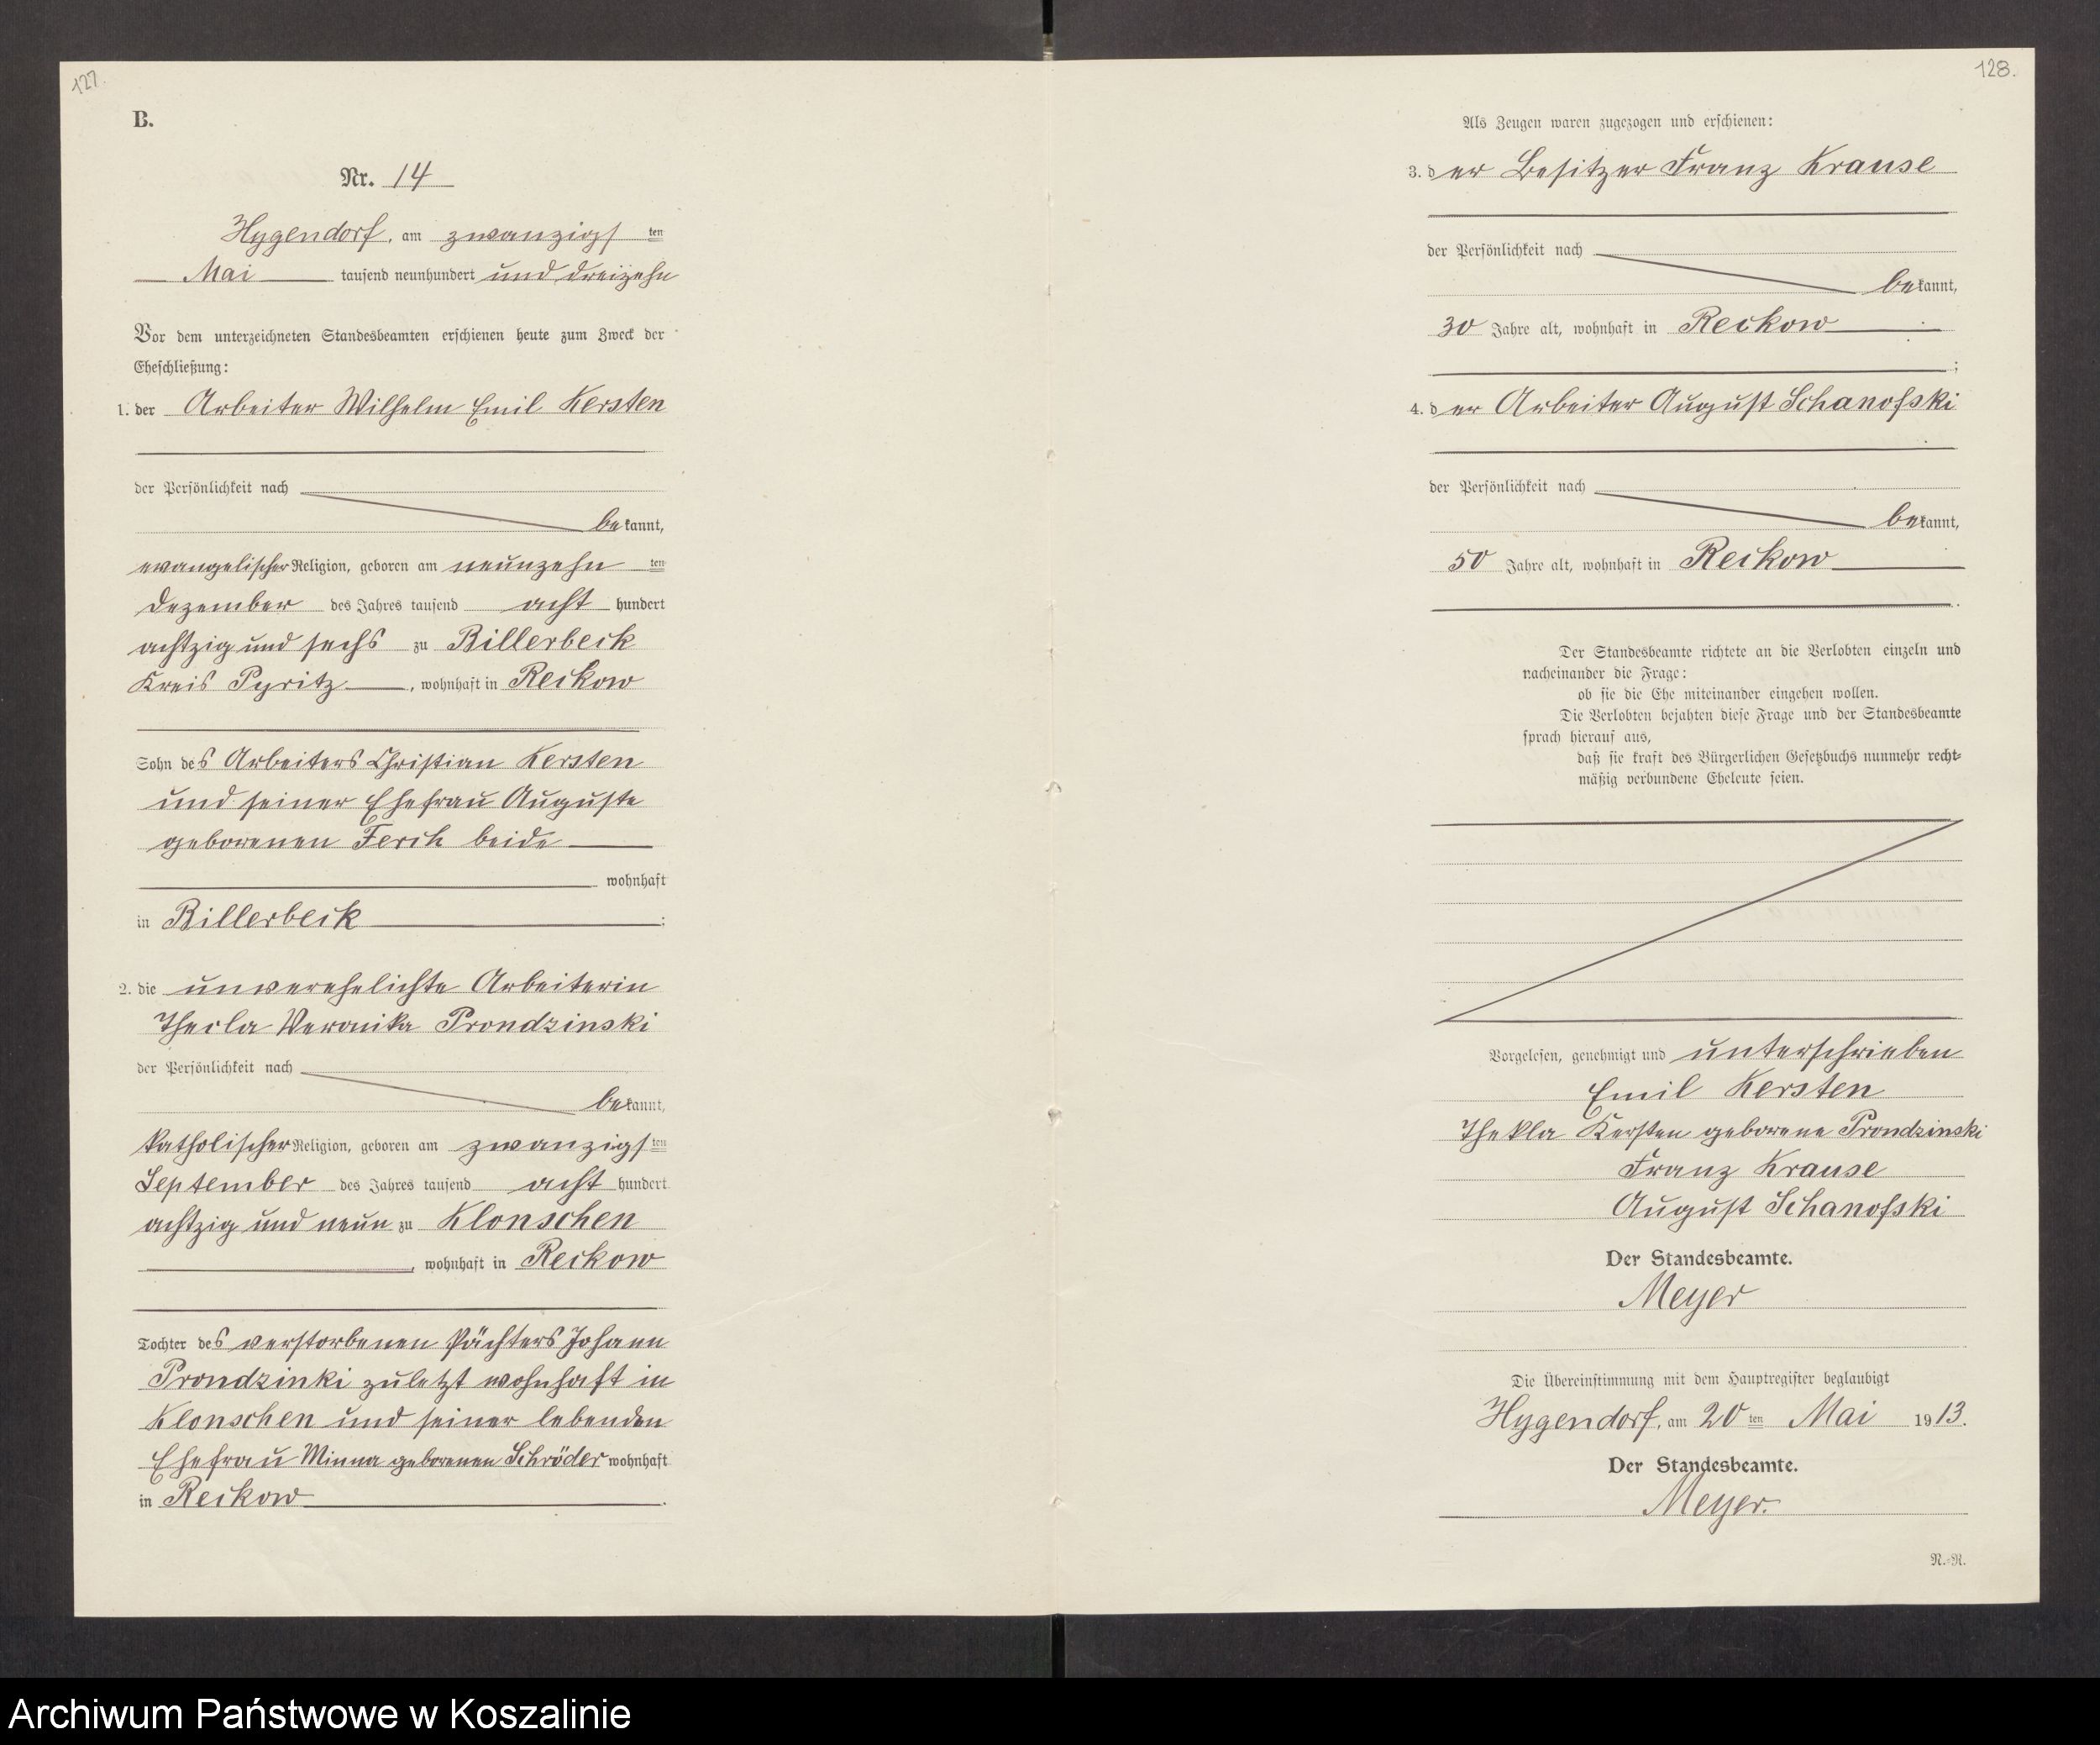 127.
B.
Nr. 14
Hygendorf, am zwanzigsten
Mai tausend neunhundert und dreizehn
Vor dem unterzeichneten Standesbeamten erschienen heute zum Zweck der
Eheschließung:
1. der Arbeiter Wilhelm Emil Kersten
der Persönlichkeit nach
bekannt,
evangelischer Religion, geboren am neunzehn ten
Dezember des Jahres tausend acht hundert
achtzig und sechs zu Billerbeck
Kreis Pyritz, wohnhaft in Reckow
Sohn des Arbeiters Christian Kersten
und seiner Ehefrau Auguste
geborenen Ferch beide
wohnhaft
in Billerbeck ;
2. die unverehelichte Arbeiterin
Thecla Veronika Prondzinski
der Persönlichkeit nach
bekannt,
katholischer Religion, geboren am zwanzigsten
September des Jahres tausend acht hundert
achtzig und neun zu Klonschen
, wohnhaft in Reckow
Tochter des verstorbenen Pächters Johann
Prondzinki zuletzt wohnhaft in
Klonschen und seiner lebenden
Ehefrau Minna geborenen Schröder wohnhaft
in Reckow .
128.
Als Zeugen waren zugezogen und erschienen:
3. der Besitzer Franz Krause
der Persönlichkeit nach
bekannt,
30 Jahre alt, wohnhaft in Reckow
;
4. der Arbeiter August Schanofski
der Persönlichkeit nach
bekannt,
50 Jahre alt, wohnhaft in Reckow
.
Der Standesbeamte richtete an die Verlobten einzeln und
nacheinander die Frage:
ob sie die Ehe miteinander eingehen wollen.
Die Verlobten bejahten diese Frage und der Standesbeamte
sprach hierauf aus,
daß sie kraft des Bürgerlichen Gesetzbuchs nunmehr recht-
mäßig verbundene Eheleute seien.
Vorgelesen, genehmigt und unterschrieben
Emil Kersten
Thekla Kersten geborene Prondzinski
Franz Krause
August Schanofski
Der Standesbeamte.
Meyer
Die Übereinstimmung mit dem Hauptregister beglaubigt
Hygendorf, am 20 ten Mai 1913.
Der Standesbeamte.
Meyer.
N.-R.
Archiwum Państwowe w Koszalinie